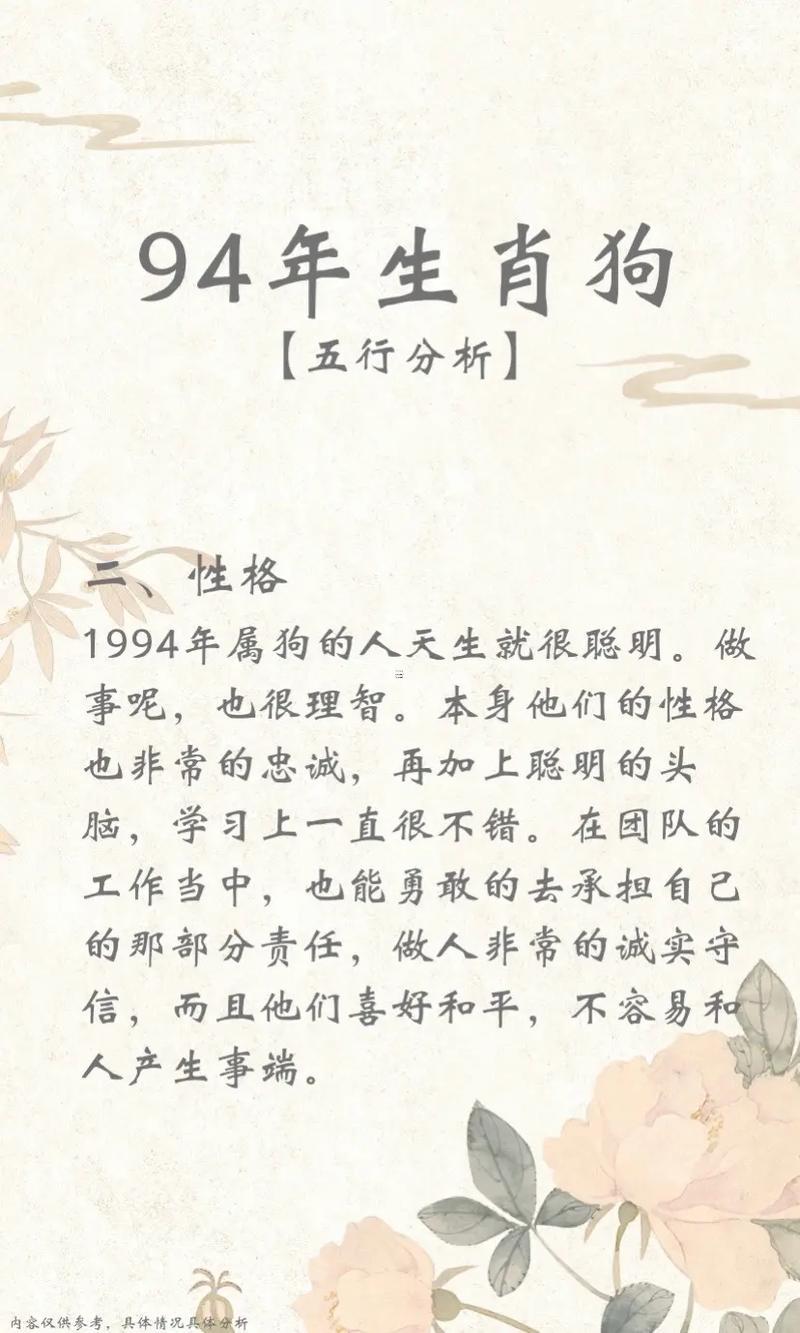 94年生肖狗
【五行分析】
二、性格
1994年属狗的人天生就很聪明。做
事呢，也很理智。本身他们的性格
也非常的忠诚，再加上聪明的头
脑，学习上一直很不错。在团队的
工作当中，也能勇敢的去承担自己
的那部分责任，做人非常的诚实守
信，而且他们喜好和平，不容易和
人产生事端。
内容仅供参考，具体情况具体分析